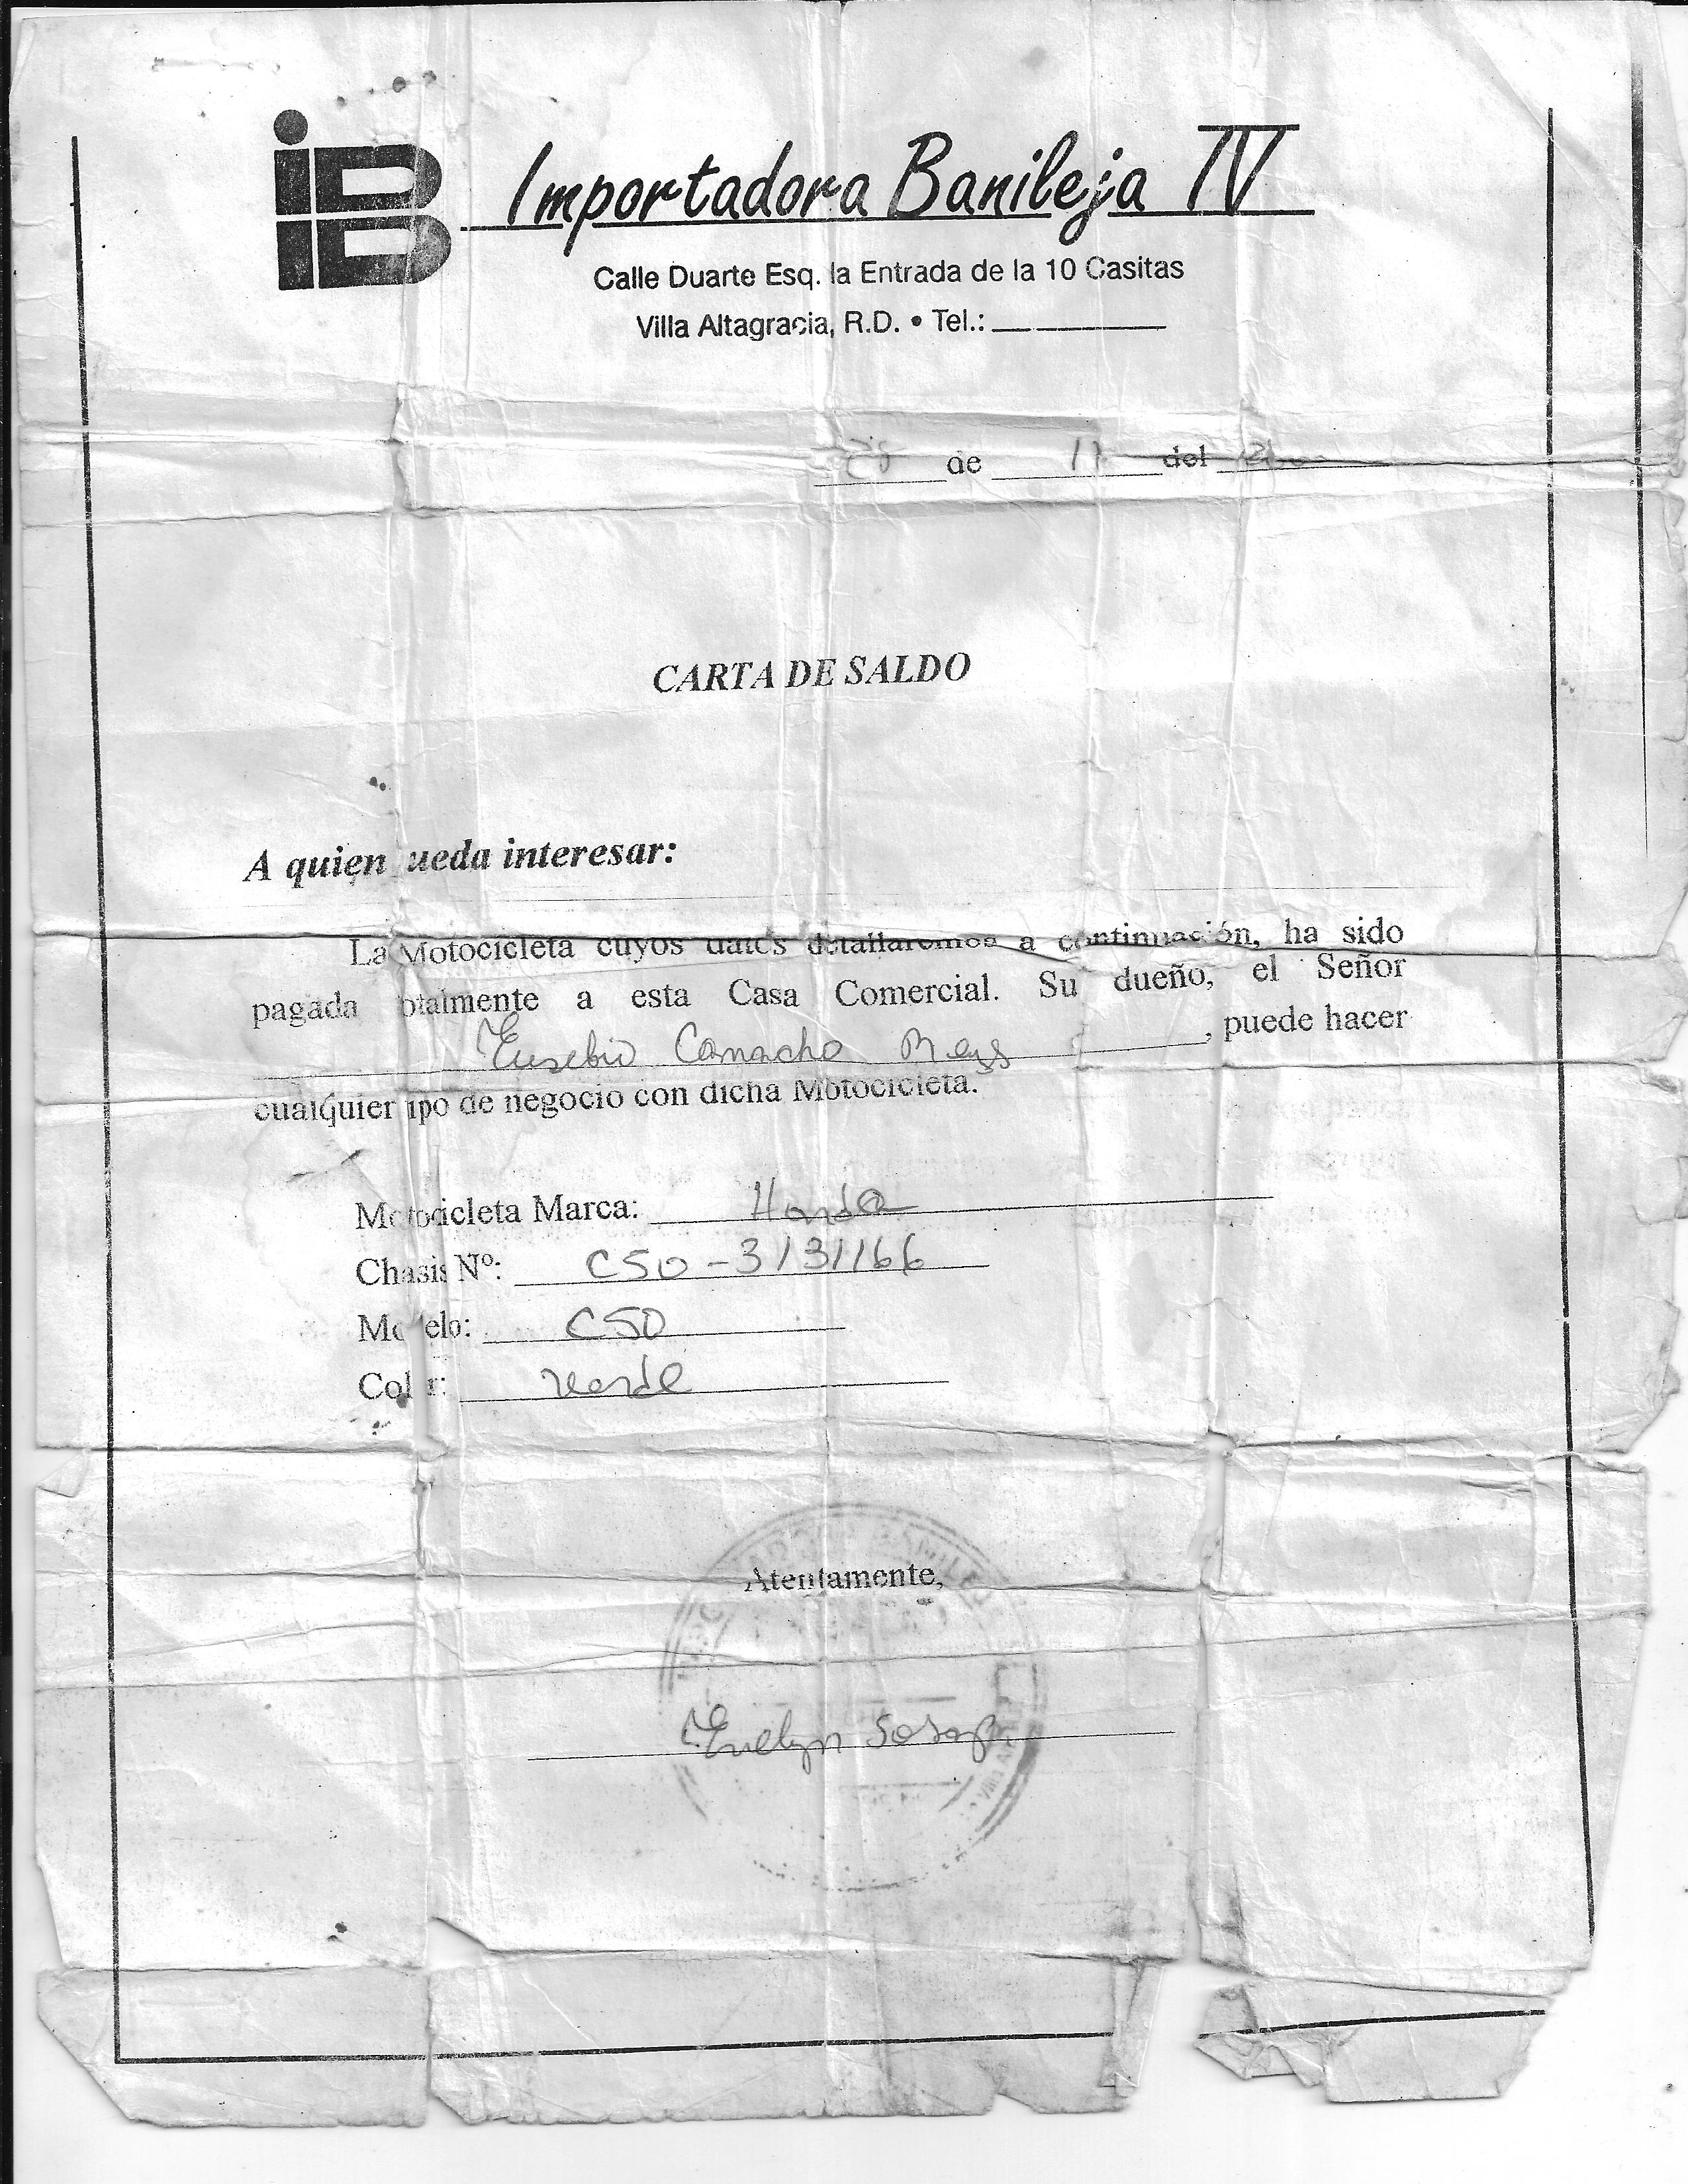 iB
Importadora Banileja IV
Calle Duarte Esq. la Entrada de la 10 Casitas
Villa Altagracia, R.D. • Tel.:
de 11 del
CARTA DE SALDO
A quien ueda interesar:
La Motocicleta cuyos datos detallaremos a continuación, ha sido
pagada otalmente a esta Casa Comercial. Su dueño, el Señor
Eusebio Camacho Reys, puede hacer
cualquier ipo de negocio con dicha Motocicleta.
Motocicleta Marca: Honda
Chasis Nº: C50-3131166
Modelo: C50
Color: verde
Atentamente,
Evelyn Sosa